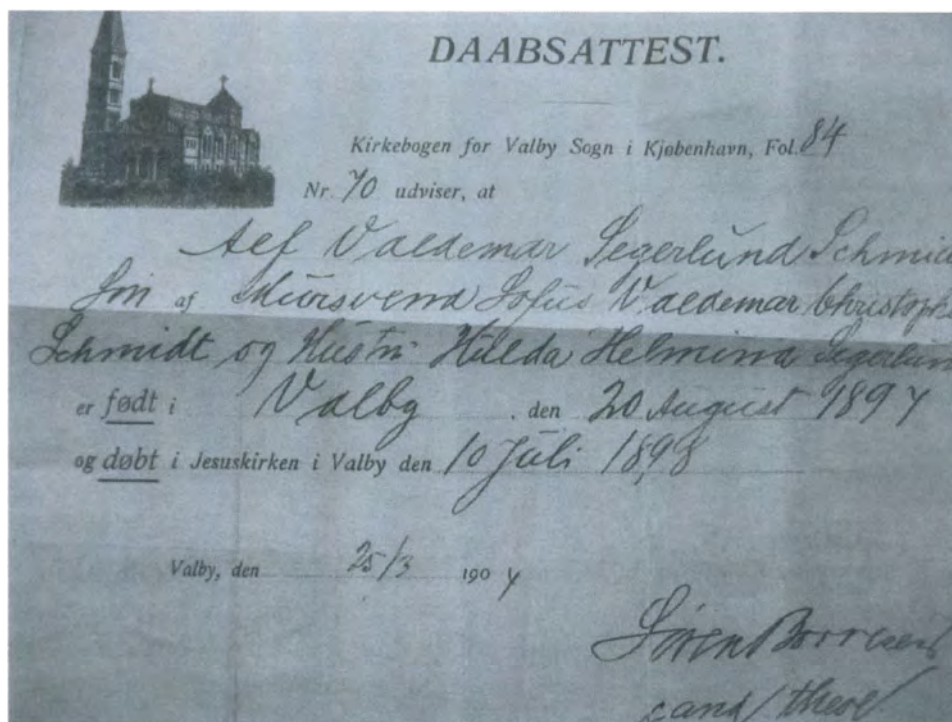 DAABSATTEST.
Kirkebogen for Valby Sogn i Kjøbenhavn, Fol. 84
Nr. 70 udviser, at
Valdemar Segerlund Schmid
Søn af Murersvend Sofus Valdemar Christoph
Schmidt og Hustru Hulda Helmina Segerlun
er født i Valby . den 20 August 1897
og døbt i Jesuskirken i Valby den 10 Juli 1898
Valby, den 25/3 1907
Søren
cand theol